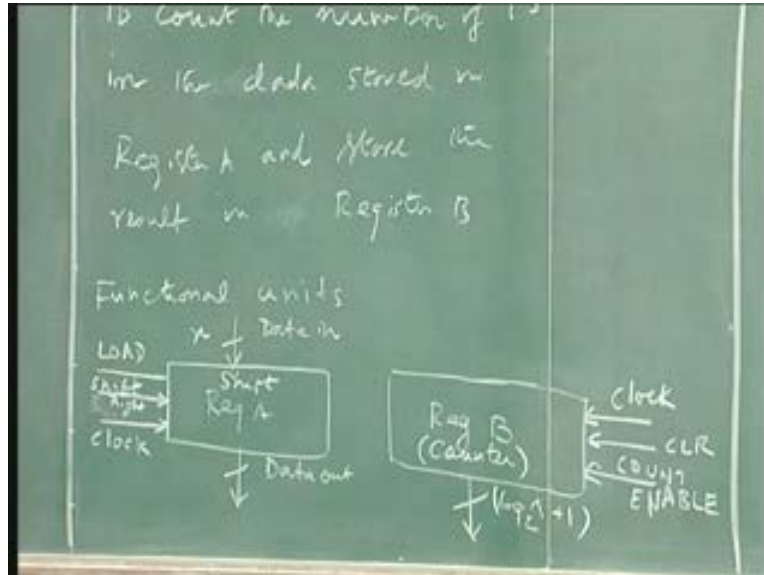 To count the number of 1's
in the data stored in
Register A and store the
result in Register B
Functional units
n Data in
LOAD
Shift
Right
Clock
Shift
Reg A
Data out
Reg B
(Counter)
Clock
CLR
COUNT
ENABLE
(log₂n +1)